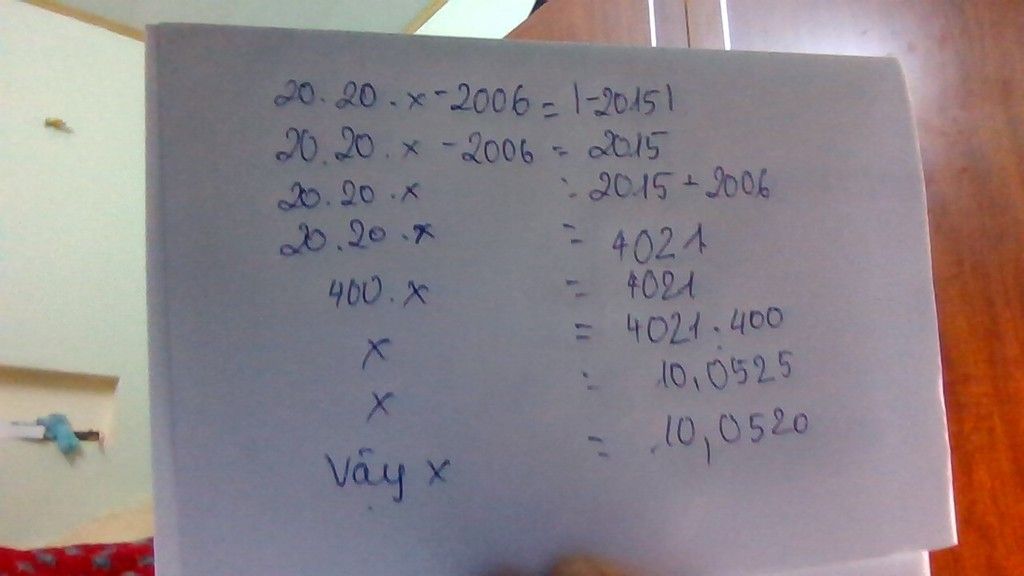 20.20.x-2006=|-2015|
20.20.x-2006=2015
20.20.x = 2015+2006
20.20.x = 4021
400.x = 4021
x = 4021:400
x = 10,0525
Vây x = 10,0520